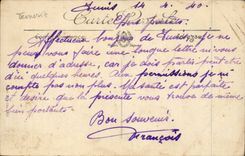 Tunisie
Tunis 14. 4. 40.
Carte
Affectueux bonjour de Tunis. Je ne
peux vous faire une longue lettre ni vous
donner d'adresse, car je dois partir peut être
d'ici quelques heures. Aux permissions je n'y
compte pas non plus. Ma santé est parfaite
et désire que la présente vous trouve de même
bien portants.
Bon souvenir.
François